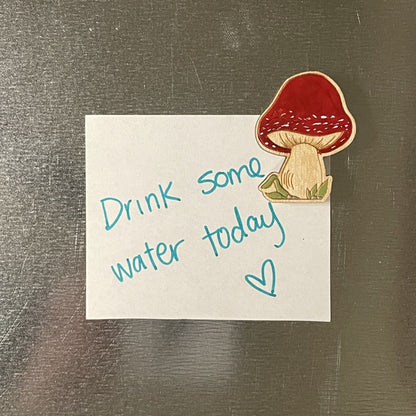 Drink some
water today
♡